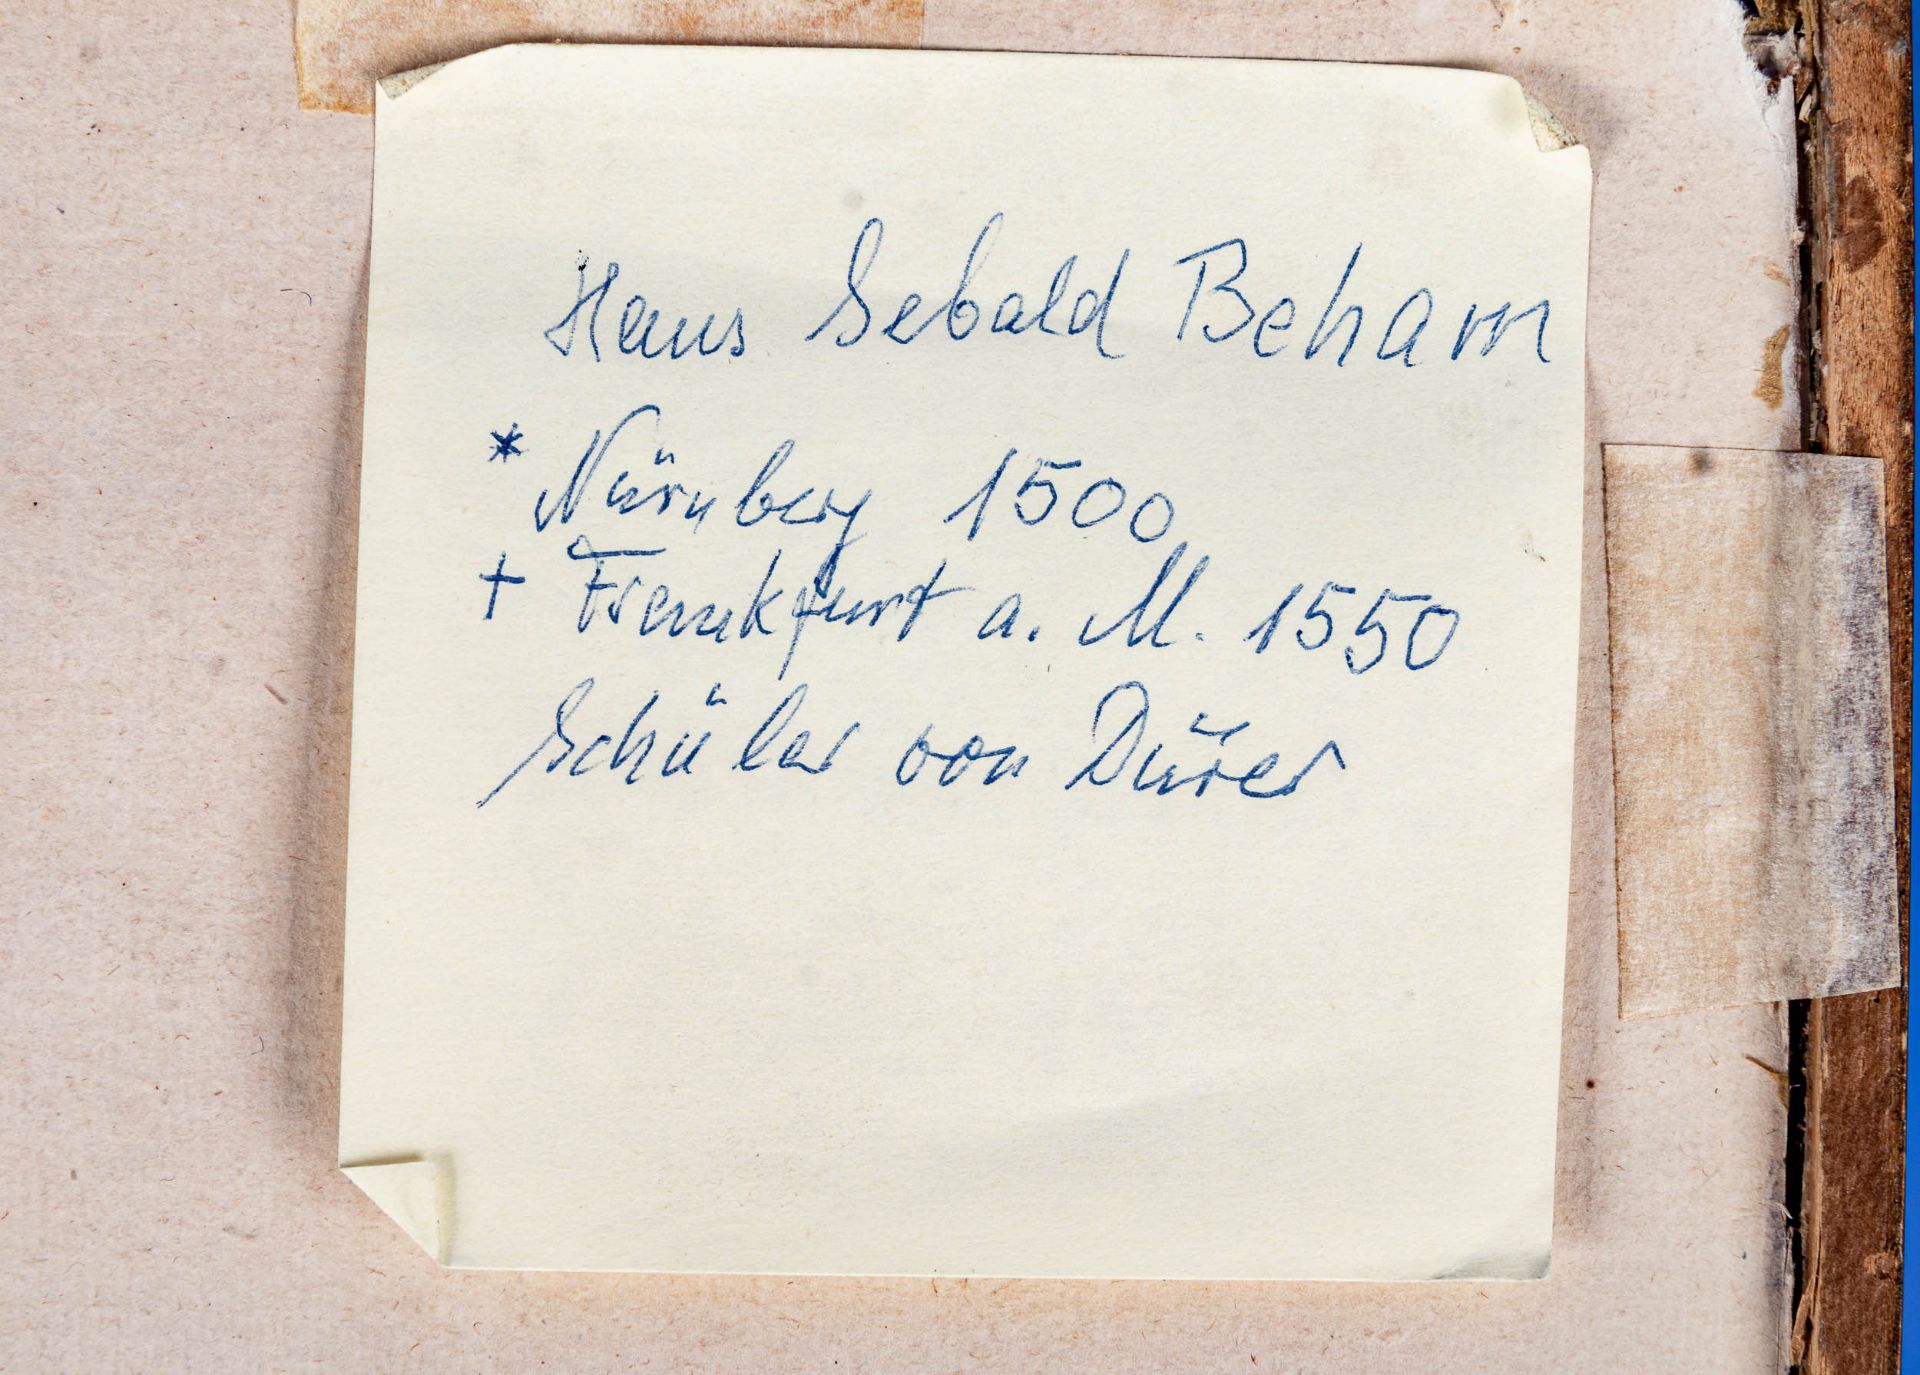 Hans Sebald Beham
* Nürnberg 1500
+ Frankfurt a. M. 1550
Schüler von Dürer